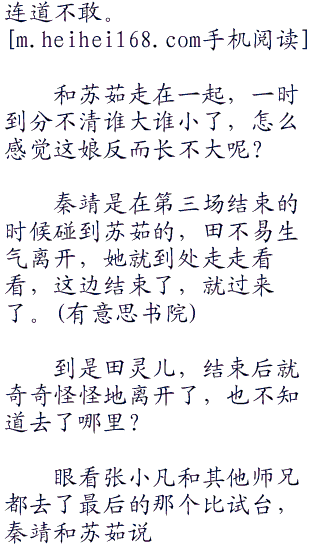 连道不敢。
[m.heihei168.com手机阅读]
和苏茹走在一起，一时
到分不清谁大谁小了，怎么
感觉这娘反而长不大呢？
秦靖是在第三场结束的
时候碰到苏茹的，田不易生
气离开，她就到处走走看
看，这边结束了，就过来
了。(有意思书院)
到是田灵儿，结束后就
奇奇怪怪地离开了，也不知
道去了哪里？
眼看张小凡和其他师兄
都去了最后的那个比试台，
秦靖和苏茹说